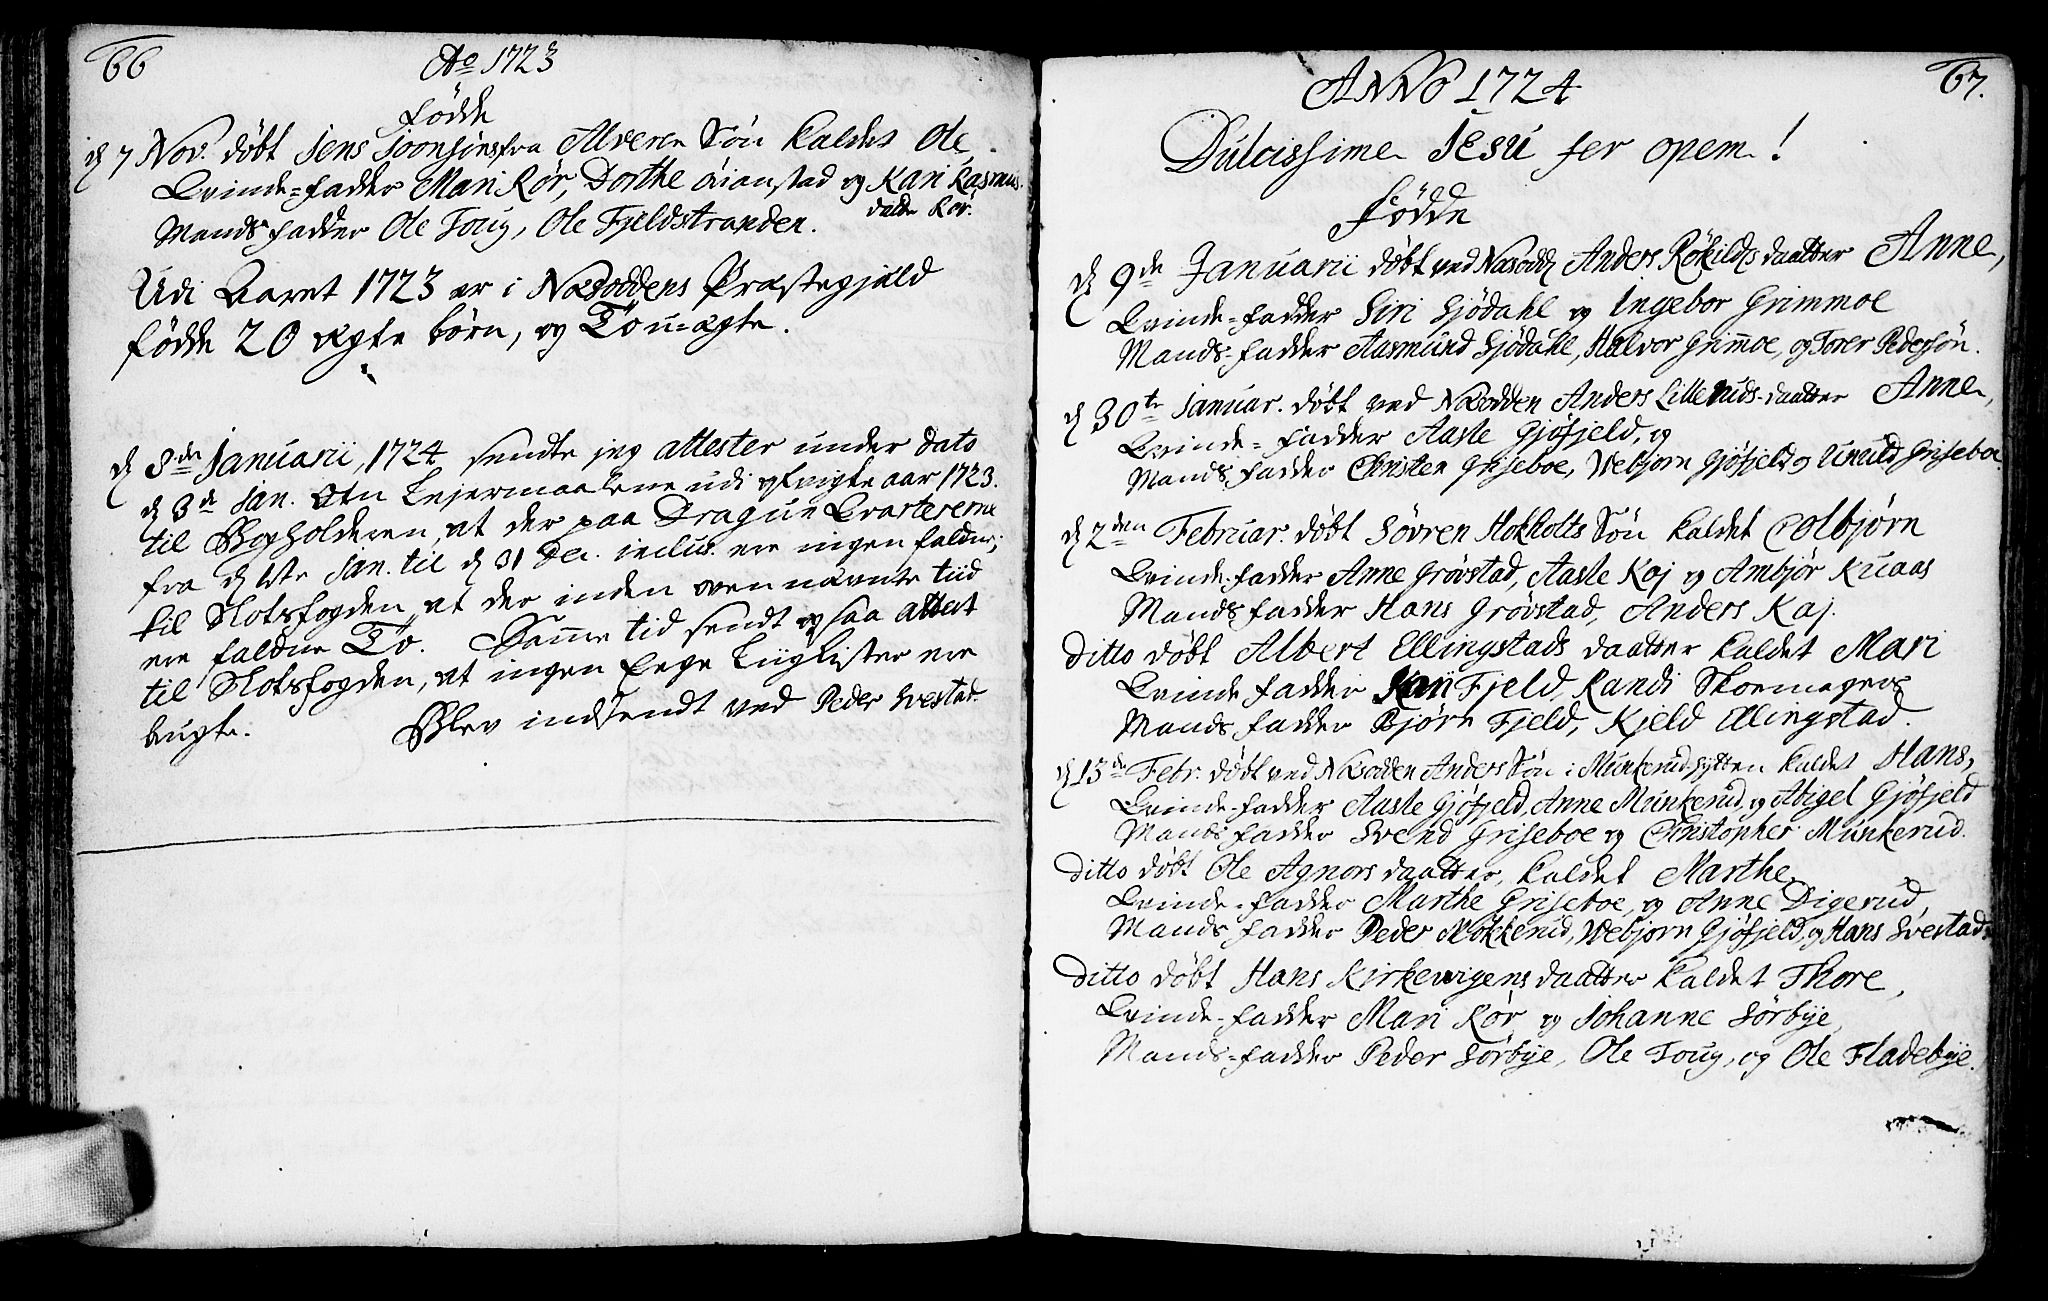 66
Ao 1723
Fødde
d 7 Nov. døbt Jens Joensens fra Alveren Søn kaldet Ole.
Qvinde-fadder Mari Rør, Dorthe Øianstad og Kari Rasmus-
datter Rør.
Mands fadder Ole Toug, Ole Fjeldstranden.
Udi Aaret 1723 er i Næsoddens Præstegjæld
fødde 20 ægte børn, og To u-ægte.
d 8de Januarii, 1724 sendte jeg attester under dato
d 3de Jan. Om Lejermaalene udi afvigte aar 1723.
til Bogholderen, at der paa Dragun Qvartererne
fra d 1ste Jan. til d 31 Dec. inclus. ere ingen faldne;
til Slotsfogden, at der inden ovennævnte tiid
ere faldne To. Samme tid sendt og saa attest
til Slotsfogden, at ingen Eege Liigkister ere
brugte. Blev indsendt ved Peder Svestad.
67.
ANNO 1724
Dulcissime Jesu fer opem!
Fødde
d 9de Januarii døbt ved Næsodd Anders Røkilds daatter Anne,
Qvinde-fadder Siri Sjødahl og Ingebor Grimmoe
Mands-fadder Aasmund Sjødahl, Halvor Grimoe, og Torer Pedersøn.
d 30te Januar. døbt ved Næsodden Anders Lilleruds-daatter Anne,
Qvinde-fadder Aaste Gjøfjeld, og
Mands fadder Christen Griseboe, Webjørn Gjøfjeld og Griseboe.
d 2den Februar. døbt Søvren Hokholts Søn kaldet Colbjørn
Qvinde-fadder Anne Grøvstad, Aaste Kaj og Ambjør Kuaas
Mands fadder Hans Grøvstad, Anders Kaj.
Ditto døbt Albert Ellingstads daatter kaldet Mari
Qvinde fadder Kari Fjeld, Randi Skoemagers
Mands fadder Bjørn Fjeld, Kjeld Ellingstad.
d 13de Febr. døbt ved Næsodden Anders Søn i Munkerud-hytten kaldet Hans,
Qvinde-fadder Aaste Gjøfjeld, Anne Munkerud, og Abigel Gjøfjeld
Mands fadder Svend Griseboe og Christopher Munkerud.
Ditto døbt Ole Agnors daatter, kaldet Marthe,
Qvinde-fadder Marthe Griseboe, og Anne Digerud,
Mands fadder Peder Mokkerud, Webjørn Gjøfjeld, og Hans Svestad.
Ditto døbt Hans Kirkevigens daatter kaldet Thore,
Qvinde-fadder Mari Rør og Johanne Sørbye,
Mands-fadder Peder Sørbye, Ole Toug, og Ole Fladebye.